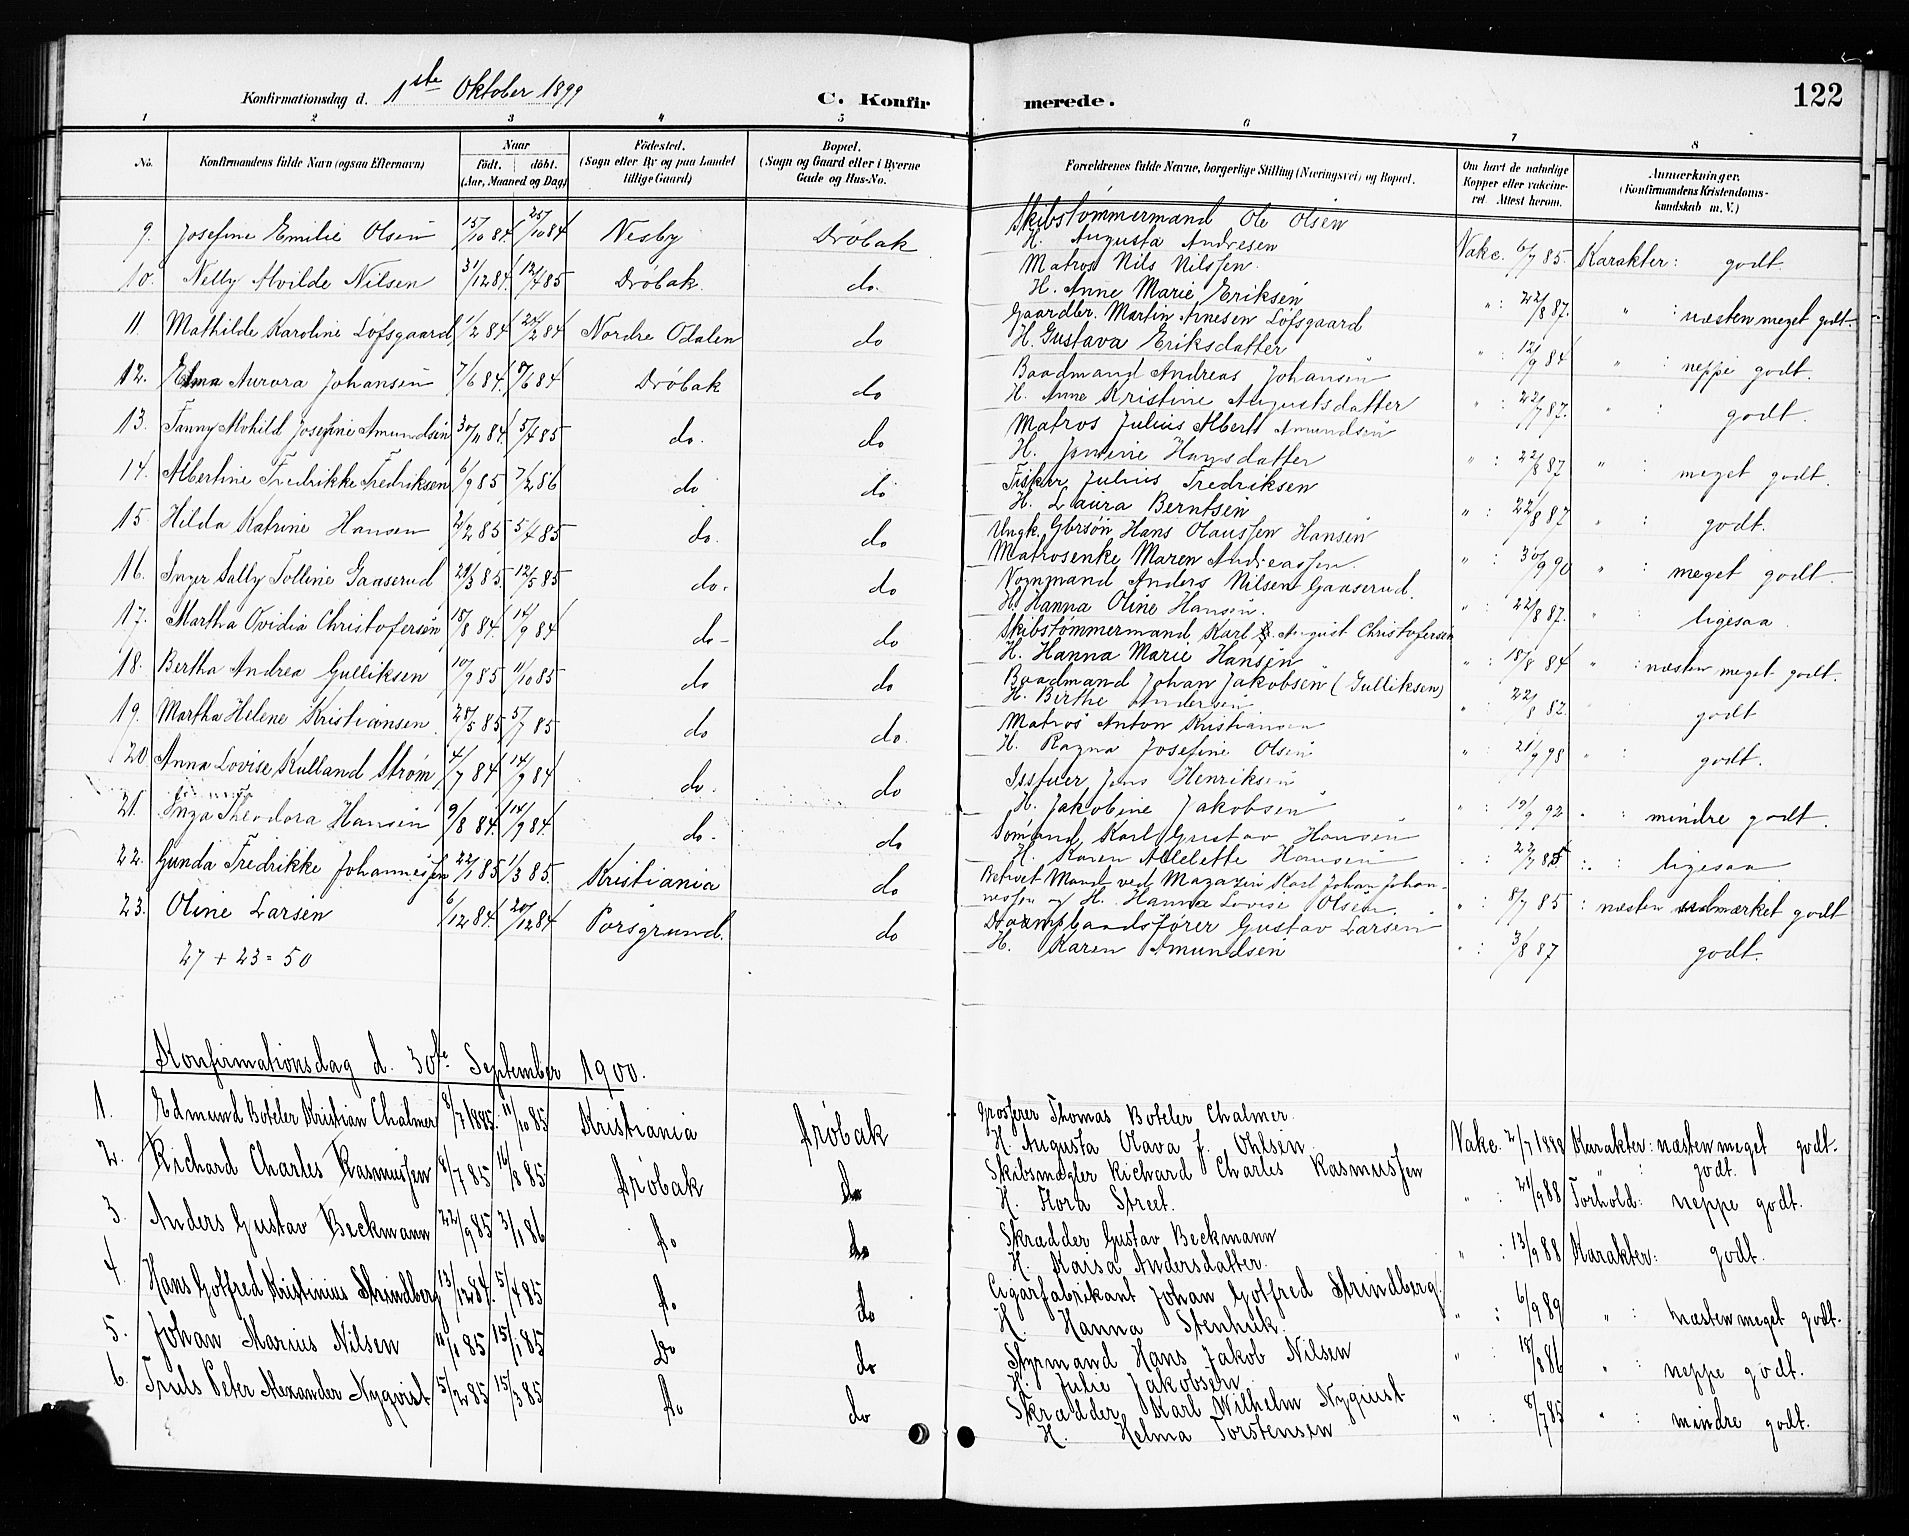 Konfirmationsdag d. 1ste Oktober 1899 C. Konfirmerede. 122
1 2 3 4 5 6 7 8
No. Konfirmandens fulde Navn (ogsaa Efternavn) Naar født. døbt. (Aar, Maaned og Dag) Födested. (Sogn eller By og paa Landet tillige Gaard) Bopæl. (Sogn og Gaard eller i Byerne Gade og Hus-No. Forældrenes fulde Navne, borgerlige Stilling (Næringsvei) og Bopæl. Om havt de naturlige Kopper eller vakcineret. Attest herom. Anmærkninger. (Konfirmandens Kristendomskundskab m.V.)
9. Josefine Emilie Olsen 15/10 84 25/10 84 Nesby Drøbak Skibstømmermand Ole Olsen
H. Augusta Andresen Vakc. 6/7 85. Karakter: godt.
10. Nelly Alvilde Nilsen 31/12 84. 12/4 85 Drøbak. do. Matros Nils Nilssen.
H. Anne Marie Eriksen " : 22/8 87. " : næsten meget godt.
11. Mathilde Karoline Løfsgaard 1/2 84 24/2 84 Nordre Odalen do Gaardbr. Martin Arnesen Løfsgaard
H. Gustava Eriksdatter " : 12/9 84 " : neppe godt.
12. Elma Aurora Johansen 7/6 84. 9/6 84 Drøbak do Baadmand Andreas Johansen
H. Anne Kristine Augustsdatter " : 22/7 87. " : godt.
13. Fanny Alvhild Josefine Amundsen 30/11 84. 5/4 85 do. do Matros Julius Albert Amundsen
H. Jensine Hansdatter " : 22/8 87 " : meget godt.
14. Albertine Fredrikke Fredriksen 6/9 85 7/2 86 do do Fisker Julius Fredriksen
H. Laura Berntsen " : 22/8 87 " : godt.
15. Hilda Katrine Hansen 2/2 85 5/4 85 do. do Ungk. Gbrsøn Hans Olaussen Hansen
Matrosenke Maren Andreassen " : 30/9 90 " : meget godt.
16. Inger Sally Tolline Gaaserud 29/3 85. 12/5 85 do. do Vognmand Anders Nilsen Gaaserud.
H. Hanna Oline Hansen. " : 22/8 87. " : ligesaa.
17. Martha Ovidia Christofersen 18/8 84. 14/9 84 do- do Skibstømmermand Karl August Christofersen
H. Hanna Marie Hansen " : 18/8 84 " : næsten meget godt.
18. Bertha Andrea Gulliksen 10/9 85 11/10 85 do do Baadmand Johan Jakobsen (Gulliksen)
H. Birthe Andersen " : 22/8 82. " godt
19. Martha Helene Kristiansen 28/5 85 5/7 85 do do. Matros Anton Kristiansen
H. Ragna Josefine Olsen " : 21/9 98 " : godt.
20 Anna Lovise Kulland Strøm 4/7 84 14/9 84 do. do Jens Henriksen
H. Jakobine Jakobsen " : 19/9 92 " : mindre godt.
21. Inga Theodora Hansen 9/8 84. 14/9 84. do. do Sømand Karl Gustav Hansen
H. Karen Hansen " : 22/7 85 ". : ligesaa.
22. Gunda Fredrikke Johannessen 22/1 85 1/3 85. Kristiania do Betroet Mand ved Magazin Karl Johan Johannessen og H. Hanna Lovise Olsen. " : 8/7 85 : næsten udmærket godt
23. Oline Larsen 6/12 84. 20/12 84 Porsgrund. do Dampbaadsfører Gustav Larsen
H. Karen Amundsen " : 3/8 87 godt.
27 + 23 = 50
Konfirmationsdag d. 30te September 1900.
1. Edmund Boteler Kristian Chalmer 8/7 1885. 11/10 85 Kristiania Drøbak Grosserer Thomas Boteler Chalmer.
H. Augusta Olava J. Ohlsen. Vakc. 2/7 1888 Karakter: næsten meget godt.
2. Richard Charles Rasmussen 8/7 85 16/8 85 Drøbak do Skibsmægler Richard Charles Rasmussen " : godt.
H. Flora Street. " : 21/9 88 Forhold: neppe godt.
3. Anders Gustav Beckmann 22/9 85 3/1 86 do do Skrædder Gustav Beckmann
H. Kaisa Andersdatter. " : 13/9 88 Karakter: godt.
4. Hans Gotfred Kristinius Strindberg 13/12 84. 5/4 85 do do Cigarfabrikant Johan Gotfred Strindberg.
H. Hanna Stenhuk. " : 6/9 89 " : næsten meget godt.
5. Johan Marius Nilsen 11/1 85 15/1 85 Do do Styrmand Hans Jakob Nilsen
H. Julie Jakobsen. " : 18/8 86 " : neppe godt.
6. Truls Peter Alexander Nyqvist 5/2 85 15/3 85 do do Skrædder Karl Wilhelm Nyqvist
H. Helma Torstensen " : 8/7 85 " : mindre godt.